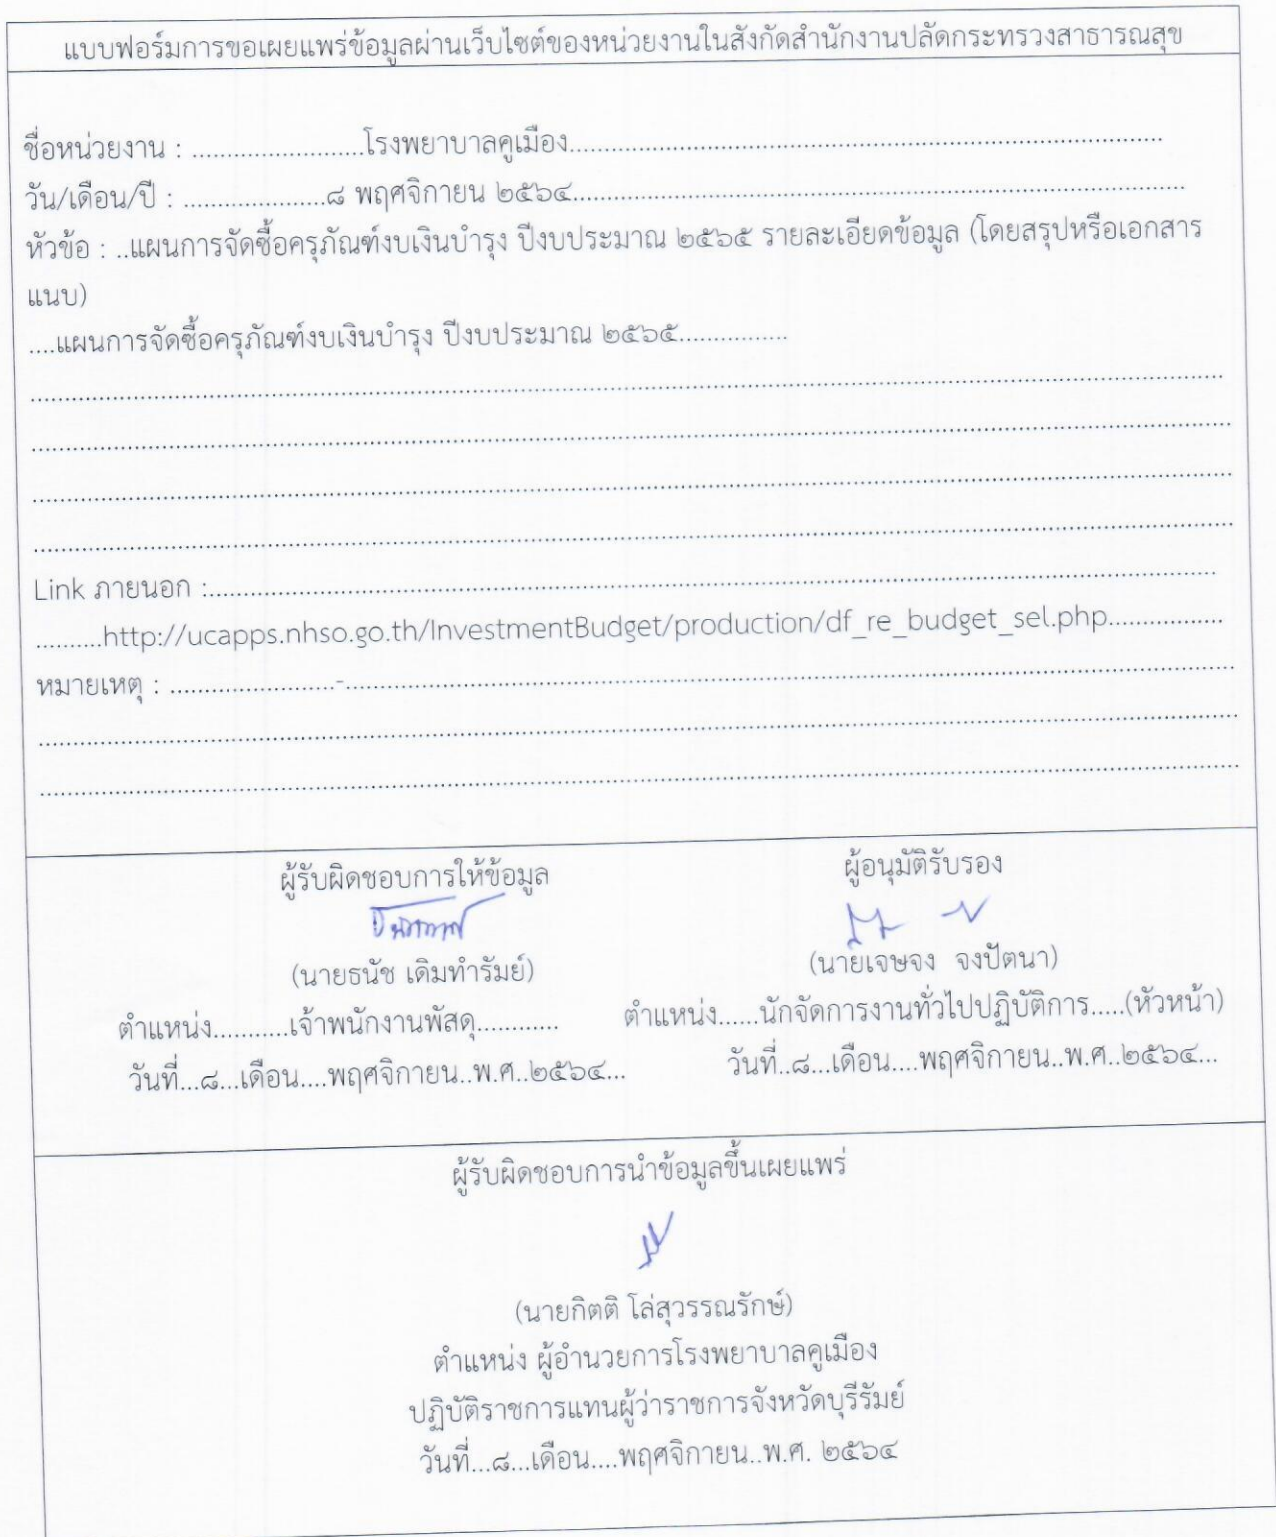 แบบฟอร์มการขอเผยแพร่ข้อมูลผ่านเว็บไซต์ของหน่วยงานในสังกัดสำนักงานปลัดกระทรวงสาธารณสุข
ชื่อหน่วยงาน : .........................โรงพยาบาลคูเมือง......................................................................................
วัน/เดือน/ปี : .....................๘ พฤศจิกายน ๒๕๖๔.........................................................................................
หัวข้อ : ..แผนการจัดซื้อครุภัณฑ์งบเงินบำรุง ปีงบประมาณ ๒๕๖๕ รายละเอียดข้อมูล (โดยสรุปหรือเอกสาร
แนบ)
....แผนการจัดซื้อครุภัณฑ์งบเงินบำรุง ปีงบประมาณ ๒๕๖๕................
Link ภายนอก :....................................................................................................................................................
..........http://ucapps.nhso.go.th/InvestmentBudget/production/df_re_budget_sel.php.................
หมายเหตุ : ........................-.................................................................................................................................
ผู้รับผิดชอบการให้ข้อมูล
(นายธนัช เดิมทำรัมย์)
ตำแหน่ง...........เจ้าพนักงานพัสดุ............
วันที่...๘...เดือน....พฤศจิกายน..พ.ศ..๒๕๖๔...
ผู้อนุมัติรับรอง
(นายเจษจง จงปัตนา)
ตำแหน่ง......นักจัดการงานทั่วไปปฏิบัติการ.....(หัวหน้า)
วันที่..๘...เดือน....พฤศจิกายน..พ.ศ..๒๕๖๔...
ผู้รับผิดชอบการนำข้อมูลขึ้นเผยแพร่
(นายกิตติ โล่สุวรรณรักษ์)
ตำแหน่ง ผู้อำนวยการโรงพยาบาลคูเมือง
ปฏิบัติราชการแทนผู้ว่าราชการจังหวัดบุรีรัมย์
วันที่...๘...เดือน....พฤศจิกายน..พ.ศ. ๒๕๖๔